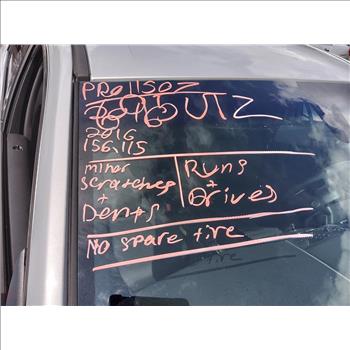 PRO 1150Z
UTZ
2016
156,115
minor
scratches
+
Dents
Runs
+
Drives
No spare tire